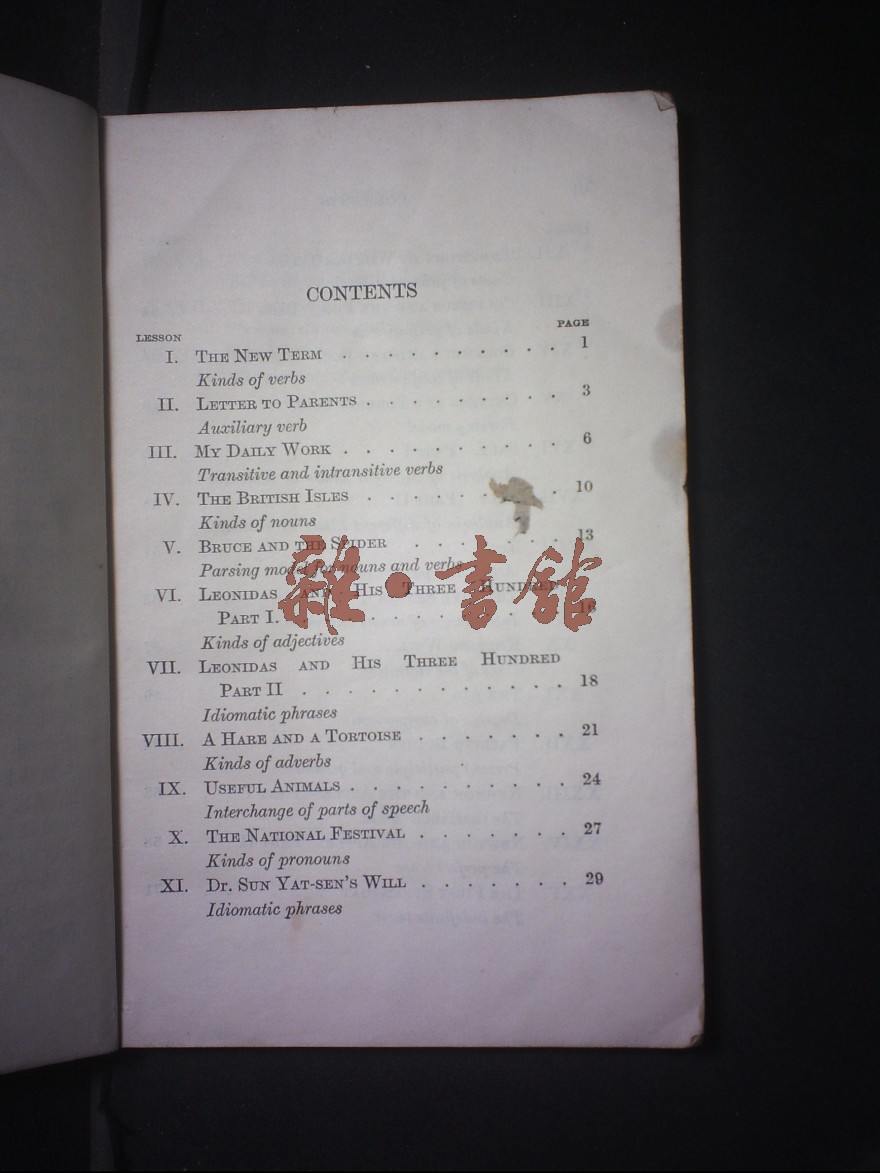 CONTENTS
LESSON PAGE
I. THE NEW TERM . . . . . . . . . . 1
Kinds of verbs
II. LETTER TO PARENTS . . . . . . . . . 3
Auxiliary verb
III. MY DAILY WORK . . . . . . . . . . 6
Transitive and intransitive verbs
IV. THE BRITISH ISLES . . . . . . . . . 10
Kinds of nouns
V. BRUCE AND THE SPIDER . . . . . . . 13
Parsing model for nouns and verbs
VI. LEONIDAS AND HIS THREE HUNDRED
PART I. . . . . . . . . . . . 16
Kinds of adjectives
VII. LEONIDAS AND HIS THREE HUNDRED
PART II . . . . . . . . . . . 18
Idiomatic phrases
VIII. A HARE AND A TORTOISE . . . . . . . 21
Kinds of adverbs
IX. USEFUL ANIMALS . . . . . . . . . . 24
Interchange of parts of speech
X. THE NATIONAL FESTIVAL . . . . . . . 27
Kinds of pronouns
XI. DR. SUN YAT-SEN'S WILL . . . . . . . 29
Idiomatic phrases
雜·書館